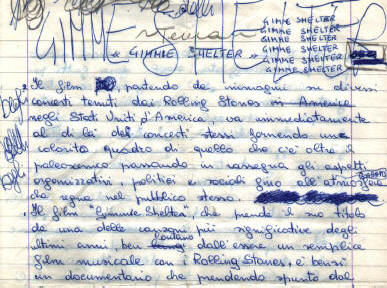 GIMME SHELTER
GIMME SHELTER
GIMME SHELTER
GIMME SHELTER
GIMME SHELTER
GIMME SHELTER
GIMME
& GIMME SHELTER
Il film, partendo da immagini su diversi
concerti tenuti dai Rolling Stones in America
negli Stati Uniti d'America va immediatamente
al di là dei concerti stessi fornendo un
colorito quadro di quello che c'è oltre il
palcoscenico passando in rassegna gli aspetti
organizzativi, politici e sociali fino all'atmosfera
che regna nel pubblico stesso.
Il film "Gimme Shelter", che prende il suo titolo
da una delle canzoni più significative degli
ultimi anni, ben lontano dall'essere un semplice
film musicale con i Rolling Stones, è bensì
un documentario che prendendo spunto dal